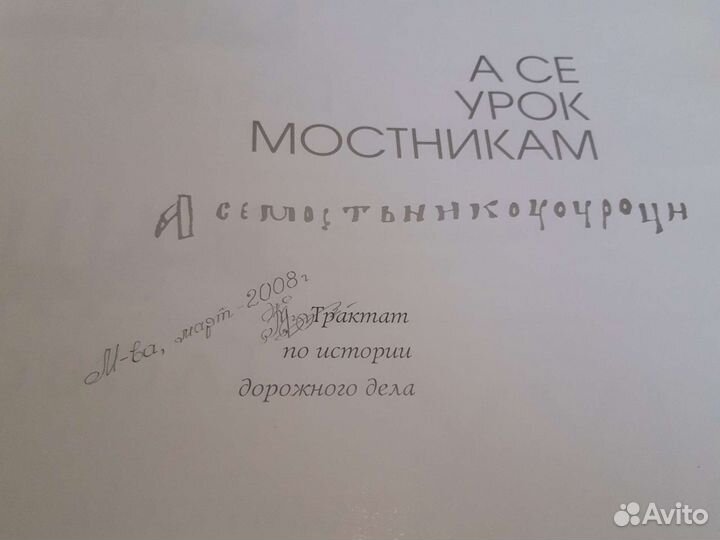 А СЕ
УРОК
МОСТНИКАМ
А семостьниковоуроци
М-ва, март-2008г
Трактат
по истории
дорожного дела
Avito